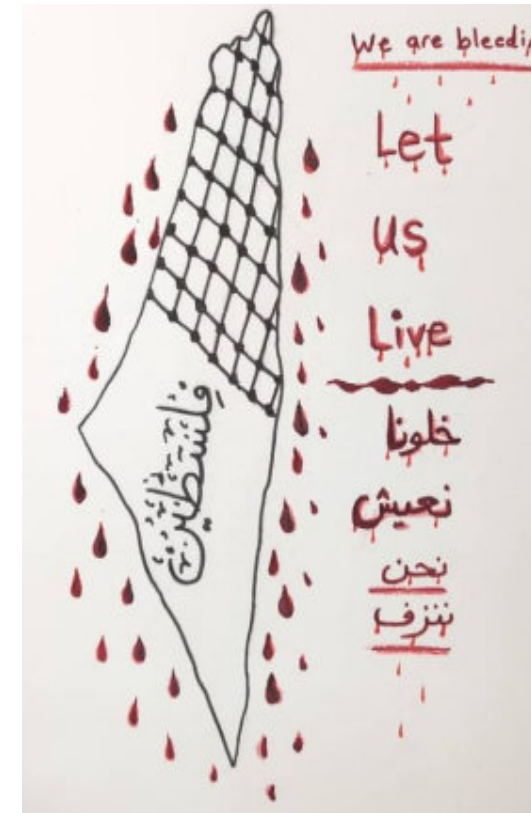 We are bleedi
Let
us
Live
خلونا
نعيش
نحن
ننزف
فلسطين